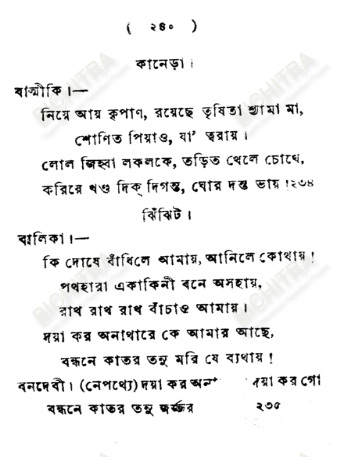 ( ২৪০ )
কানেড়া।
বাল্মীকি।—
নিয়ে আয় কৃপাণ, রয়েছে তৃষিতা শ্যামা মা,
শোণিত পিয়াও, যা' ত্বরায়।
লোল জিহ্বা লকলকে, তড়িত খেলে চোখে,
করিয়ে খণ্ড দিক্ দিগন্ত, ঘোর দন্ত ভায়।২৩৪
ঝিঁঝিট।
বালিকা।—
কি দোষে বাঁধিলে আমায়, আনিলে কোথায়!
পথহারা একাকিনী বনে অসহায়,
রাখ রাখ রাখ বাঁচাও আমায়।
দয়া কর অনাথারে কে আমার আছে,
বন্ধনে কাতর তনু মরি যে ব্যথায়!
বনদেবী। (নেপথ্যে) দয়া কর দয়া কর গো
বন্ধনে কাতর তনু জর্জ্জর ২৩৫